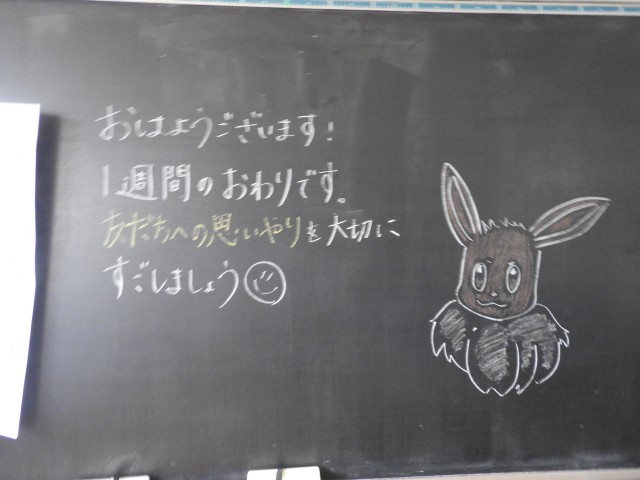 おはようございます!
1週間のおわりです。
友だちへの思いやりを大切に
すごしましょう